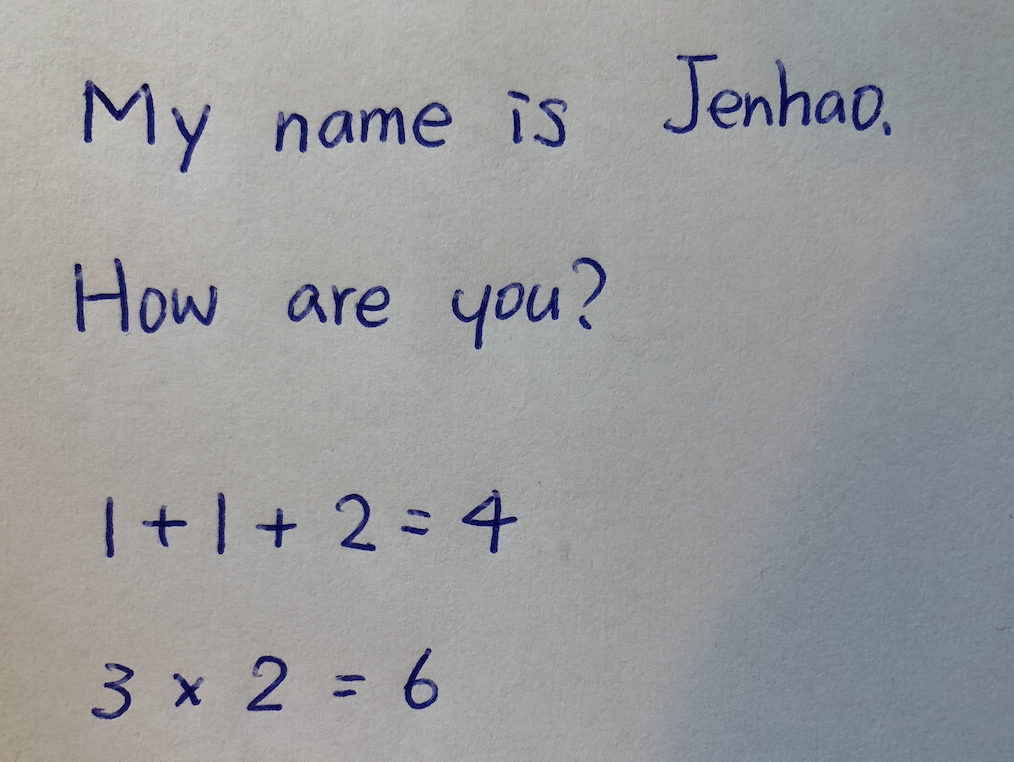 My name is Jenhao.
How are you?
1 + 1 + 2 = 4
3 x 2 = 6